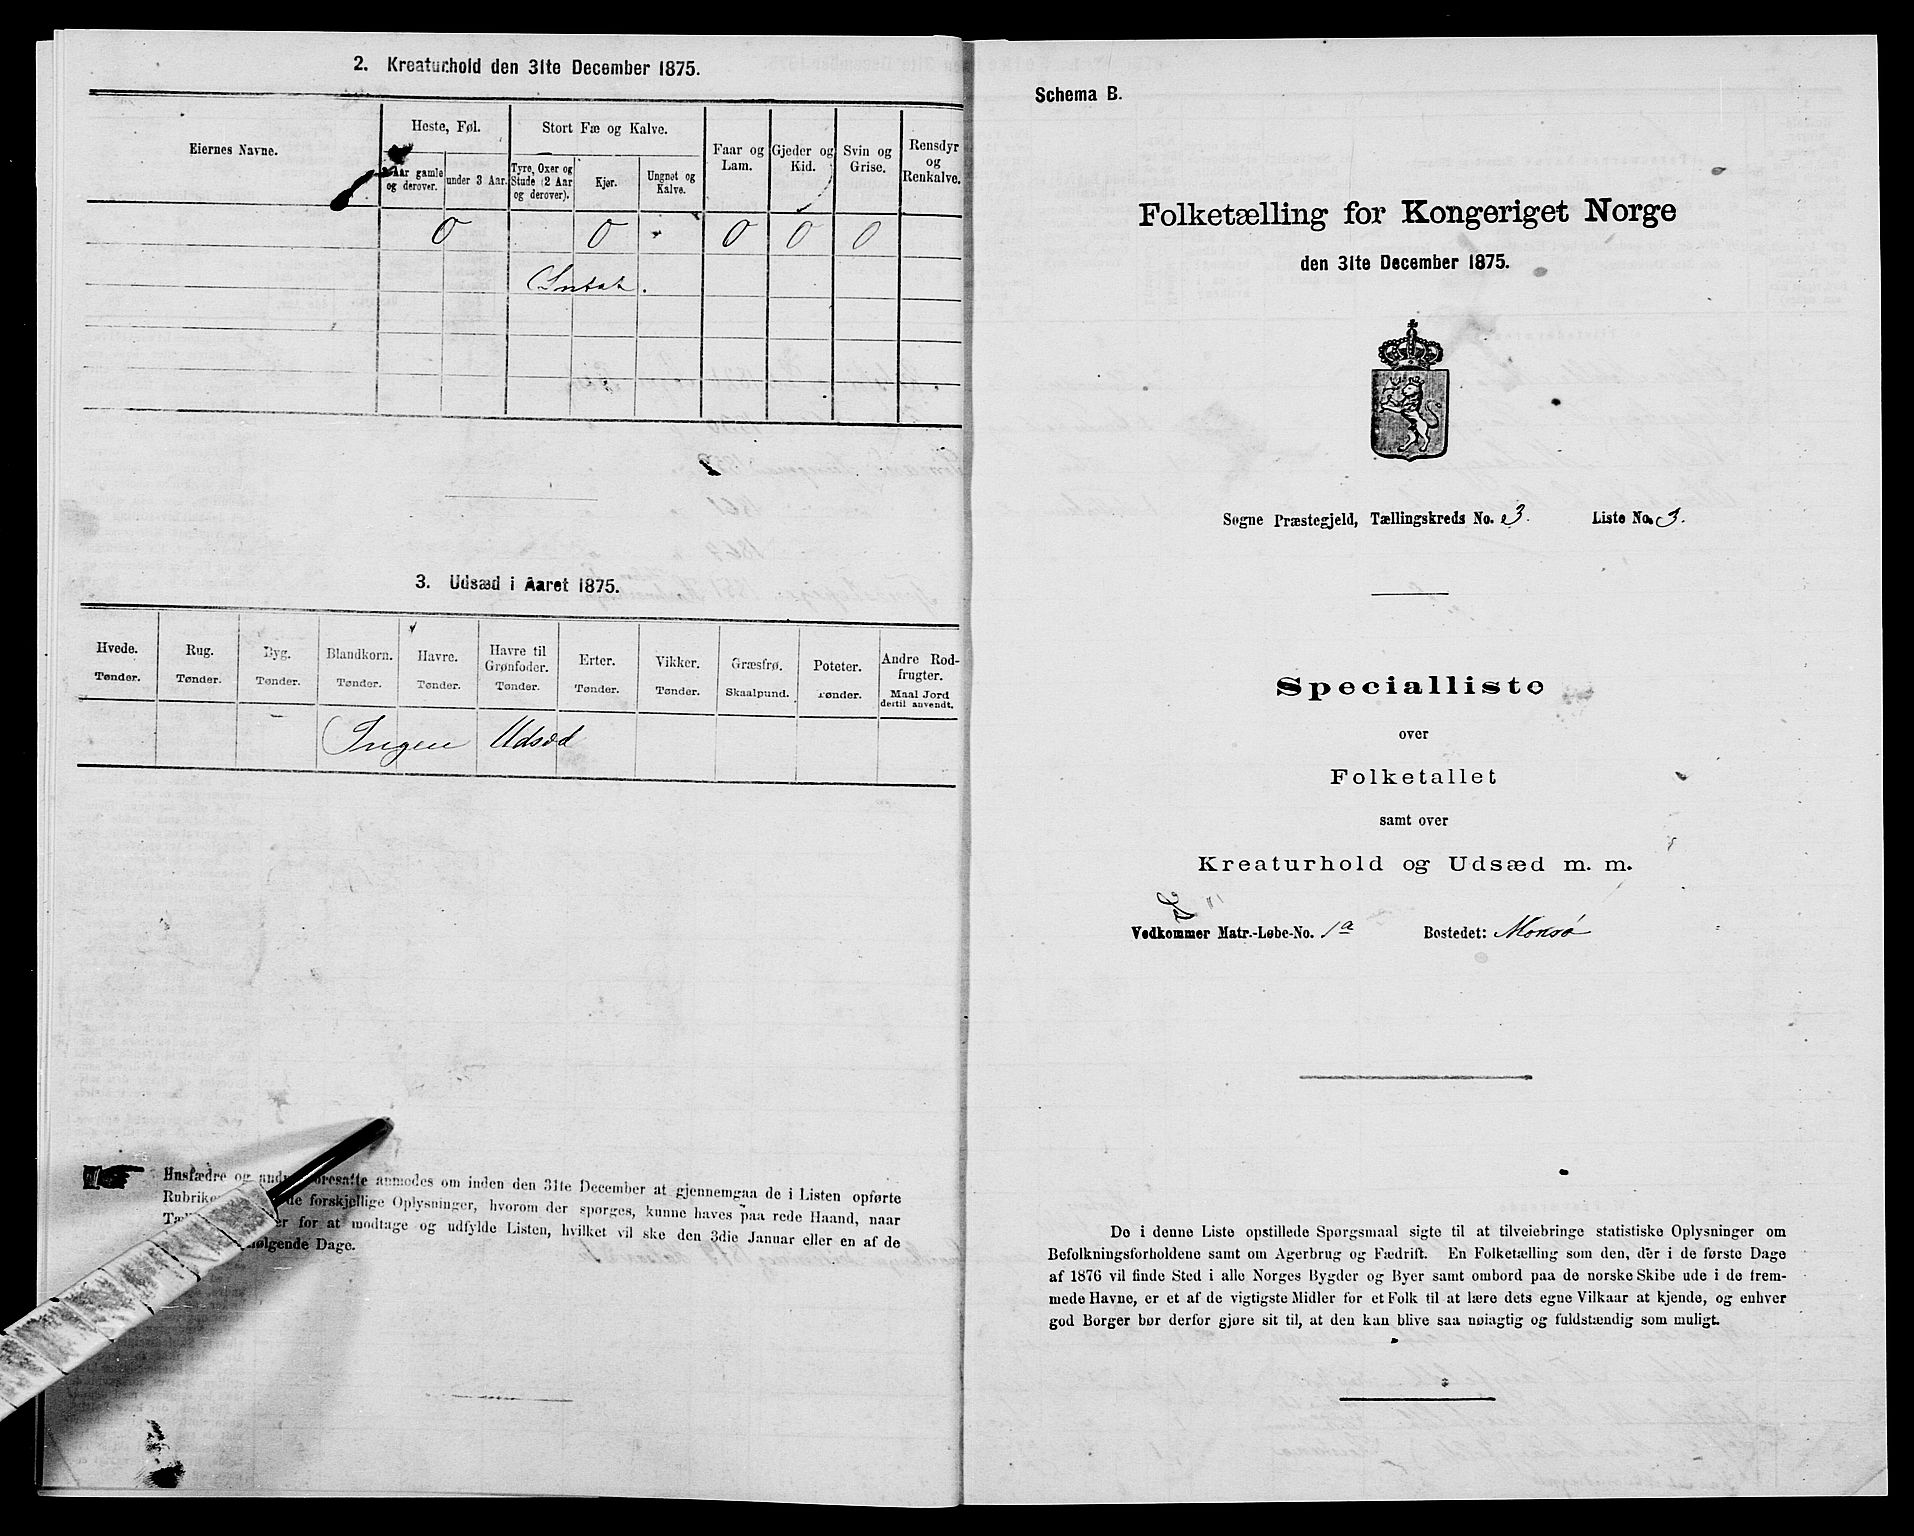 2. Kreaturhold den 31te December 1875.
Eiernes Navne.
Heste, Føl.
Stort Fæ og Kalve.
Faar og Lam.
Gjeder og Kid.
Svin og Grise.
Rensdyr og Renkalve.
Aar gamle og derover.
under 3 Aar.
Tyre, Oxer og Stude (2 Aar og derover).
Kjør.
Ungnøt og Kalve.
0 0 0 0 0
3. Udsæd i Aaret 1875.
Hvede. Rug. Byg. Blandkorn. Havre. Havre til Grønfoder. Erter. Vikker. Græsfrø. Poteter. Andre Rodfrugter.
Tønder. Tønder. Tønder. Tønder. Tønder. Tønder. Tønder. Tønder. Skaalpund. Tønder. Maal Jord dertil anvendt.
Ingen Udsæd
Husfædre og andre Foresatte anmodes om inden den 31te December at gjennemgaa de i Listen opførte
forskjellige Oplysninger, hvorom der spørges, kunne haves paa rede Haand, naar
for at modtage og udfylde Listen, hvilket vil ske den 3die Januar eller en af de
følgende Dage.
Schema B.
Folketælling for Kongeriget Norge
den 31te December 1875.
Sogne Præstegjeld, Tællingskreds No. 3. Liste No. 3.
Specialliste
over
Folketallet
samt over
Kreaturhold og Udsæd m. m.
Vedkommer Matr.-Løbe-No. 1a Bostedet: Monsø
De i denne Liste opstillede Spørgsmaal sigte til at tilveiebringe statistiske Oplysninger om
Befolkningsforholdene samt om Agerbrug og Fædrift. En Folketælling som den, der i de første Dage
af 1876 vil finde Sted i alle Norges Bygder og Byer samt ombord paa de norske Skibe ude i de frem-
mede Havne, er et af de vigtigste Midler for et Folk til at lære dets egne Vilkaar at kjende, og enhver
god Borger bør derfor gjøre sit til, at den kan blive saa nøiagtig og fuldstændig som muligt.